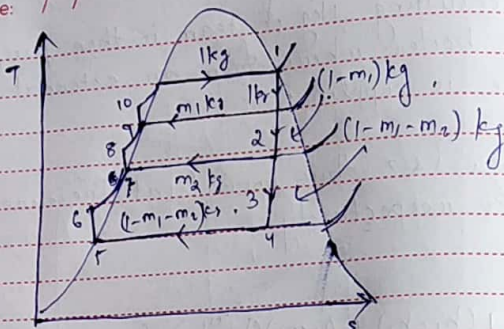 e: / /
T
1kg
1
10
m1 kg
1kg
(1-m1) kg.
9
8
2
(1-m1-m2) kg
7
m2 kg
6
(1-m1-m2)kg.
3
5
4
s